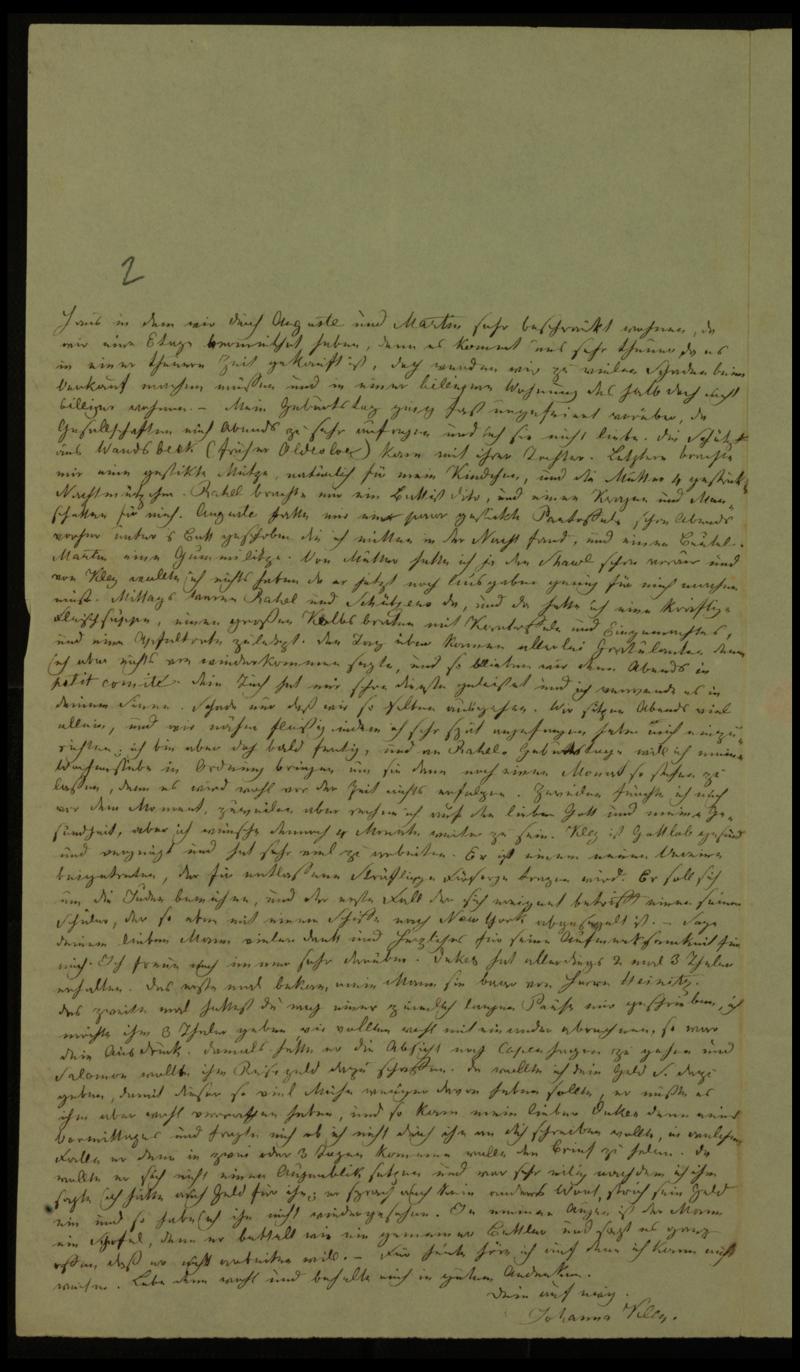 2
Haus in dem wir durch Auguste und Martin sehr beschränkt wohnen, da
wir eine Etage vermiethet haben, denn es kommt uns sehr theuer da es
in einer theuren Zeit gekauft ist, doch werden wir zu vielen Schaden beim
Verkauf machen müssen und in einer billigern Wohnung des halb doch nicht
billiger wohnen. – Mein Geburtstag ging fast ungefeiert vorüber, da
Gesellschaften mich Abends zu sehr aufregen und ich sie nicht liebe. Die Schütz
aus Wandsbeck (früher Oldesloe) kam mit ihrer Tochter. Letztere brachte
mir eine gestikte Mütze, natürlich für mein Kindchen, und die Mutter 4 gestrikte
Nachtmützchen. Rahel brachte mir ein Battist dito, und einen Kragen und Man-
schetten für mich. Auguste hatte mir ein paar gestikte Pantoffeln schon Abends
vorher unter's Bett geschoben die ich mitten in der Nacht fand, und einen Beutel.
Martin eine Gummilitze. Von Mutter hatte ich ja den Shawl schon voraus und
von Kley wollte ich nichts haben da er jetzt noch Ausgaben genug für mich machen
muß. Mittags waren Rahel und Schützens da, und da hatte ich eine kräftige
Fleischsuppe, einen großen Kalbsbraten mit Kartoffeln und Eingemachtes,
und eine Apfeltorte zuletzt. Den Tag über kamen allerlei Gratulanten denen
ich aber nichts von wiederkommen sagte, und so blieben wir denn Abends in
petit comité. Dein Tuch hat mir schon Dienste geleistet und ich verwende es in
deinem Sinne. Schade nur daß wir so selten ausgehen. Wir sitzen Abends viel
allein, und wir nähen fleißig indem ich sehr spät angefangen habe mich einzu-
richten; ich bin aber doch bald fertig, und an Rahels Geburtstage will ich meine
Wochenstube in Ordnung bringen um sie dann noch einen Monat so stehen zu
lassen, denn es wird wohl vor der Zeit nichts erfolgen. Zuweilen fürchte ich mich
vor dem Moment, zuweilen aber rechne ich auf den lieben Gott und meine Ge-
sundheit, aber ich wünsche dennoch 4 Monate weiter zu sein. Kley ist Gottlob gesund
und vergnügt und hat sehr viel zu arbeiten. Er ist einem neuen Vereine
beigetreten, der für entlassene Sträflinge Fürsorge tragen wird. Er soll sich
um die Juden bemühen, und der erste Fall der sich ereignet betrifft einen seiner
Schüler, der so eben mit einem Schiffe nach New York abgesegelt ist. – Sage
deinem lieben Mann vielen Dank und herzliches für seine Aufmerksamkeit für
mich. Ich freue mich immer sehr darüber. Dukes hat allerdings 2 mal 3 Thaler
erhalten. Das erste mal bekam mein Mann sie baar von Herrn Steinitz.
Das zweite mal hattest du nach einer ziemlich langen Pause mir geschrieben, ich
möchte ihm 3 Thaler geben wir wollten wohl mit einander abrechnen, so war
dein Ausdruk. Damals hatte er die Absicht nach Copenhagen zu gehen und
Salomon wollte ihm Reisegeld dazu schaffen. Da wollte ich dein Geld S. dazu
geben, damit dieser so viel Mühe weniger davon haben sollte, er mußte es
ihm aber wohl verrathen haben, und so kam mein lieber Dukes denn eines
Vormittages und fragte mich ob ich nicht durch ihn an dich schreiben wollte, in welchem
Falle er denn in zwei oder 3 Tagen kommen wolle den Brief zu holen. Da
wollte er sich nicht einen Augenblik setzen und war sehr eilig nachdem ich ihm
sagte ich hätte auch Geld für ihn; er sprach auch kein anderes Wort, strich sein Geld
ein und so habe ich ihn nicht wiedergesehen. In meinen Augen ist der Mann
ein Schofel, denn er bettelt wie ein gemeiner Bettler und sagt es ganz
offen, daß er nicht arbeiten will. – Für heute höre ich auf denn ich kann nicht
weiter. Lebe denn wohl und behalte mich in gutem Andenken.
Dein auf ewig.
Johanna Kley.